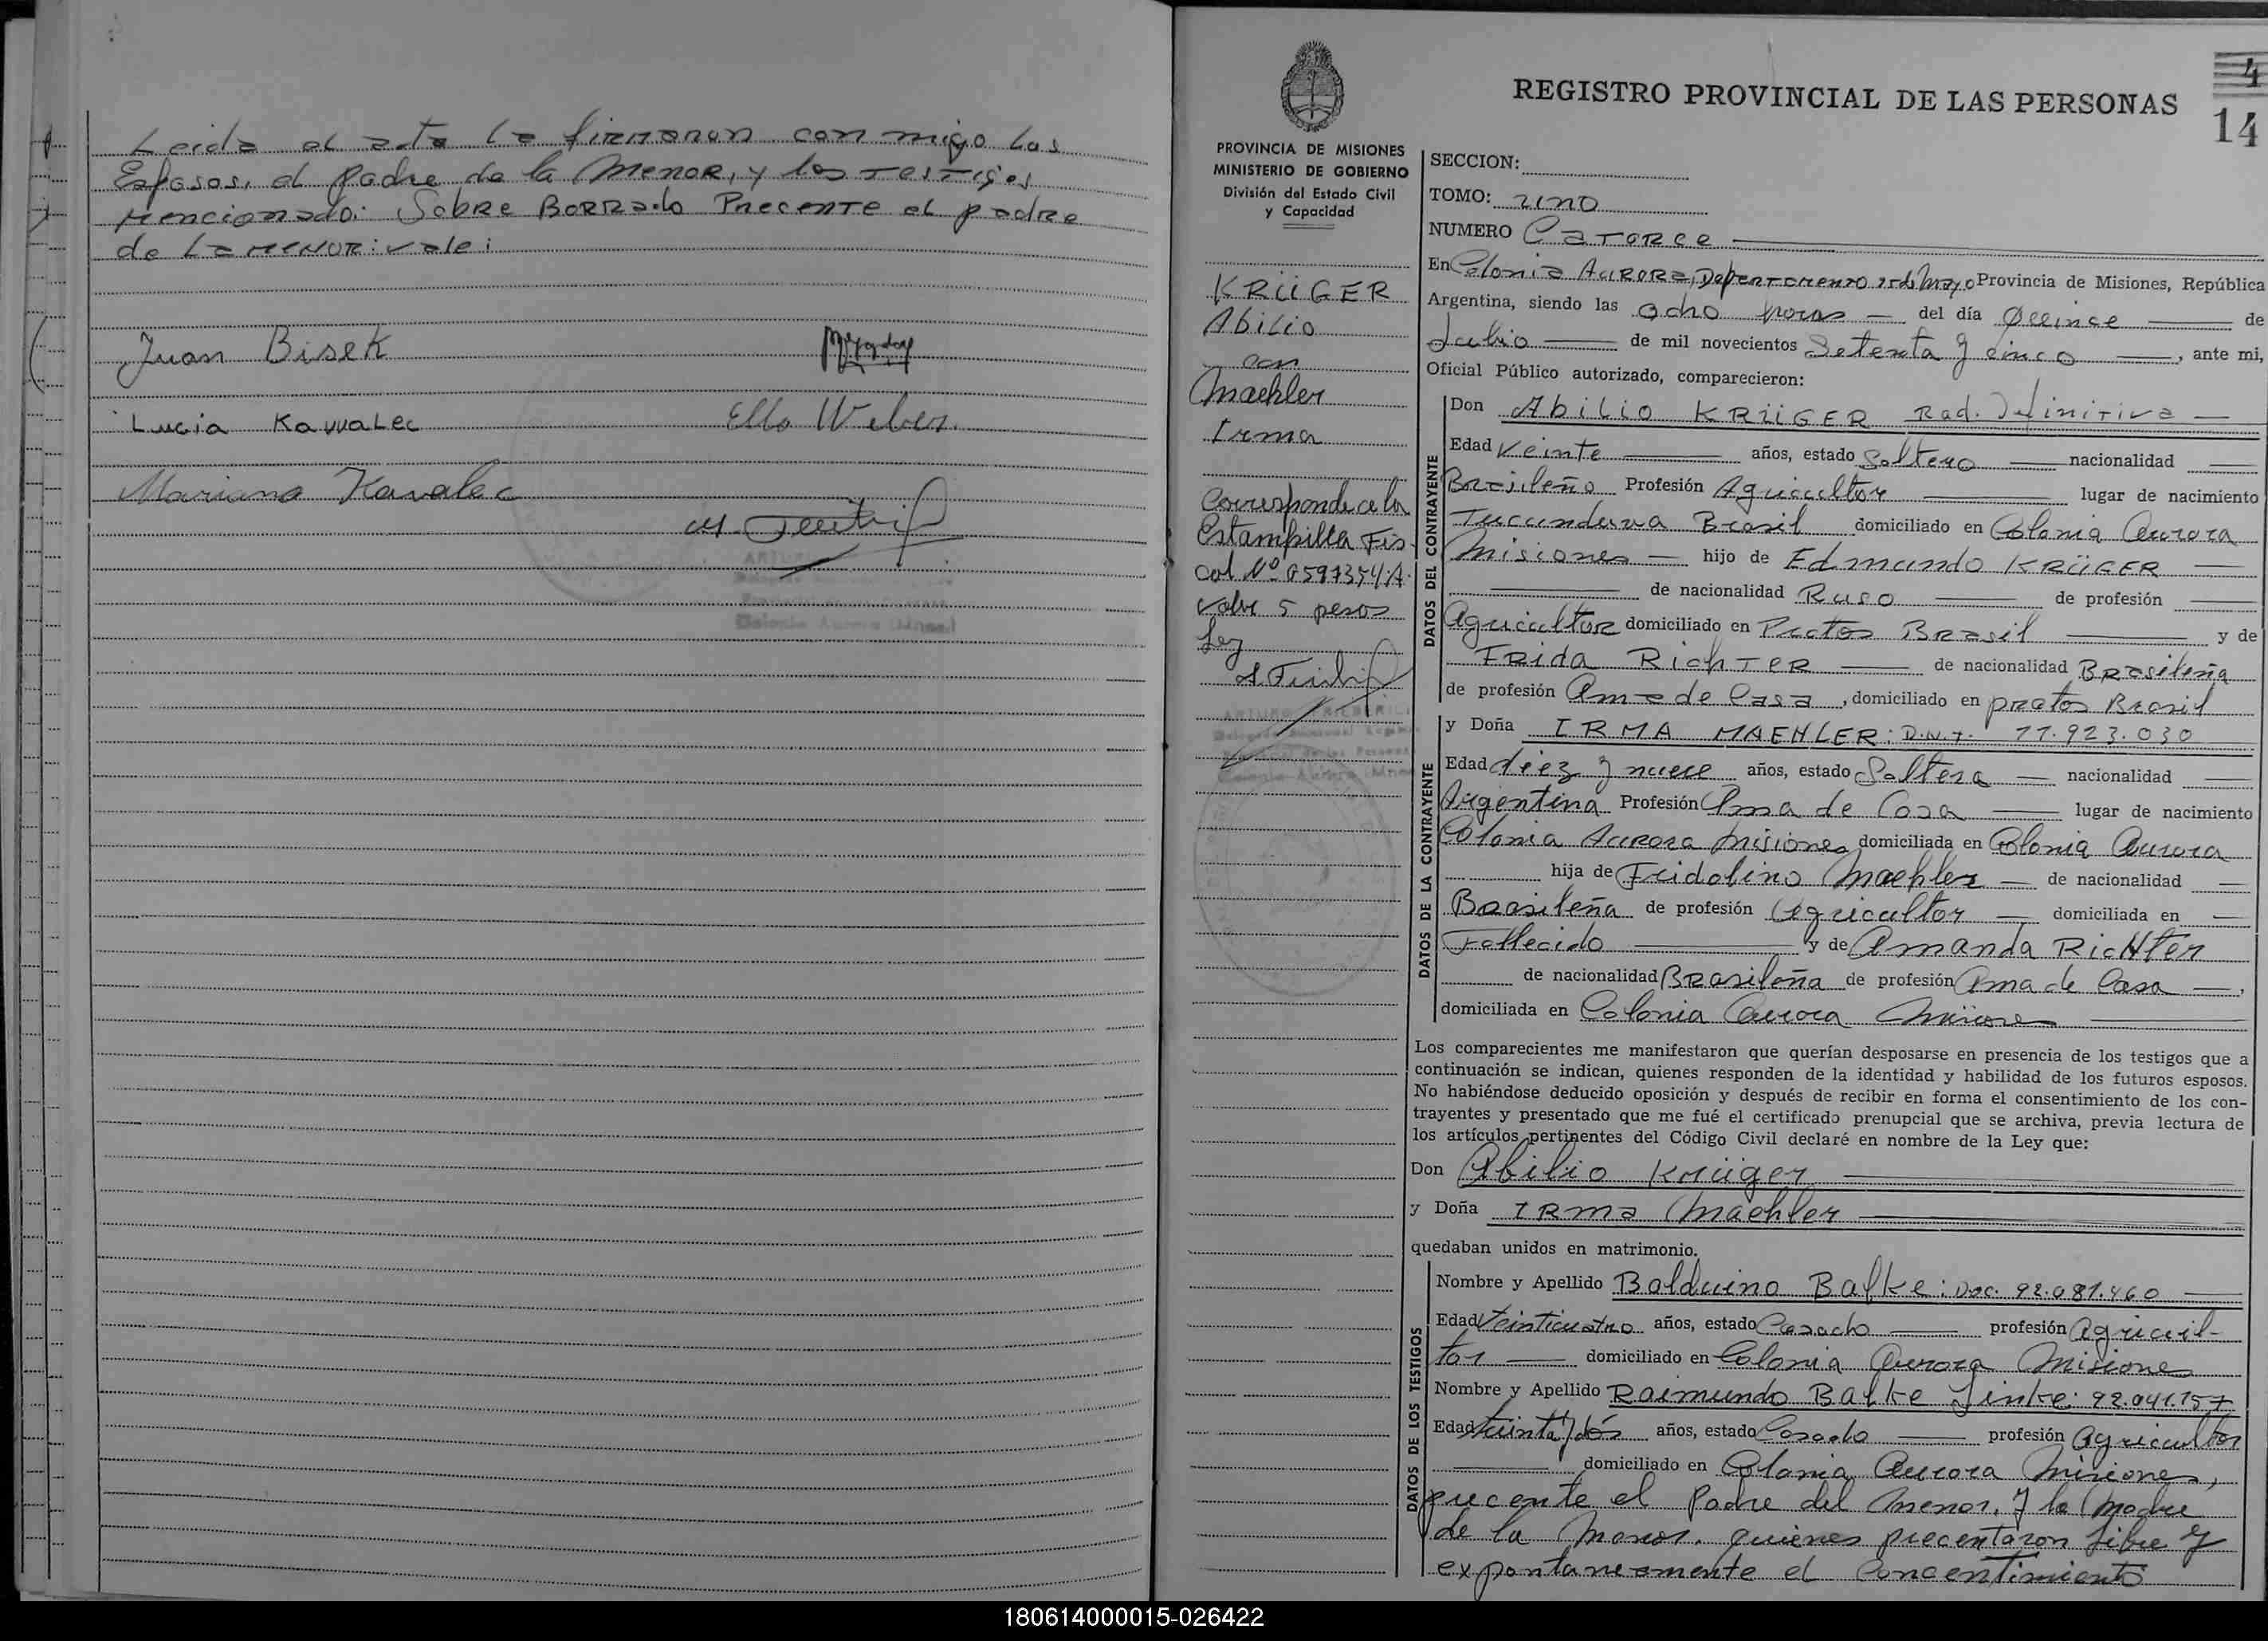 Leida el acta la firmaron con migo los
Esposos, el padre de la Menor, y los Testigos
Mencionado: Sobre Borrado Precente el padre
de La menor: vale:
Juan Bisek
Lucia Kawalec
Ello Weber.
Mariano Kavalec
Colonia Aurora (Mnes)
4
14
REGISTRO PROVINCIAL DE LAS PERSONAS
PROVINCIA DE MISIONES
MINISTERIO DE GOBIERNO
División del Estado Civil
y Capacidad
KRÜGER
Abilio
con
Maehler
Irma
Corresponde a la
Estampilla Fis
cal Nº 0597354.A.
valor 5 pesos
Ley
SECCION:
TOMO: uno
NUMERO Catorce
En Colonia Aurora, Departamento 25 de Mayo Provincia de Misiones, República
Argentina, siendo las ocho horas — del día Quince — de
Julio — de mil novecientos Setenta y cinco —, ante mi,
Oficial Público autorizado, comparecieron:
DATOS DEL CONTRAYENTE
Don Abilio KRÜGER Rad. Definitiva —
Edad Veinte — años, estado Soltero — nacionalidad —
Brasileño Profesión Agricultor — lugar de nacimiento
Tucunduva Brasil domiciliado en Colonia Aurora
Misiones — hijo de Edmundo KRÜGER —
— de nacionalidad Ruso — de profesión —
Agricultor domiciliado en Pratos Brasil — y de
Frida Richter — de nacionalidad Brasileña
de profesión Ama de Casa, domiciliado en pratos Brasil
DATOS DE LA CONTRAYENTE
y Doña IRMA MAEHLER: D.N.I. 11.923.030
Edad diez y nueve años, estado Soltera — nacionalidad —
Argentina Profesión Ama de Casa — lugar de nacimiento
Colonia Aurora Misiones domiciliada en Colonia Aurora
hija de Fridolino Maehler — de nacionalidad —
Brasileña de profesión Agricultor — domiciliada en —
Fallecido — y de Amanda Richter
de nacionalidad Brasileña de profesión Ama de Casa —,
domiciliada en Colonia Aurora Misiones —
Los comparecientes me manifestaron que querían desposarse en presencia de los testigos que a
continuación se indican, quienes responden de la identidad y habilidad de los futuros esposos.
No habiéndose deducido oposición y después de recibir en forma el consentimiento de los con-
trayentes y presentado que me fué el certificado prenupcial que se archiva, previa lectura de
los artículos pertinentes del Código Civil declaré en nombre de la Ley que:
Don Abilio Krüger —
y Doña Irma Maehler —
quedaban unidos en matrimonio.
DATOS DE LOS TESTIGOS
Nombre y Apellido Balduino Balke: Doc. 92.081.460 —
Edad Veinticuatro años, estado Casado — profesión Agricul-
tor — domiciliado en Colonia Aurora Misiones
Nombre y Apellido Raimundo Balke Linke: 92.041.157
Edad treinta y dós años, estado Casado — profesión Agricultor
— domiciliado en Colonia Aurora Misiones,
precente el Padre del menor. y la Madre
de la Menor. quienes precentaron libre y
expontaneamente el Concentimiento
180614000015-026422